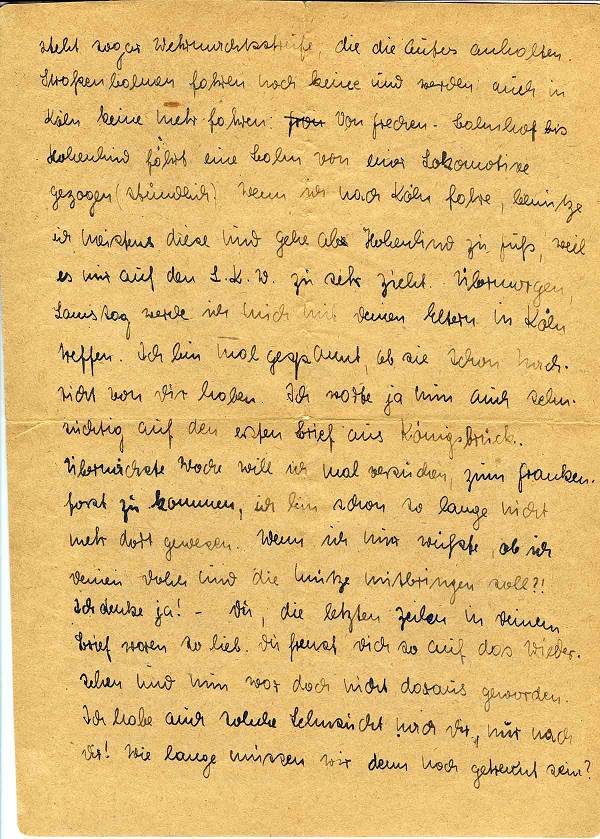 steht sogar Wehrmachtsstreife, die die Autos anhalten.
Straßenbahnen fahren noch keine und werden auch in
Köln keine mehr fahren. Von Frechen-Bahnhof bis
Hohenlind fährt eine Bahn von einer Lokomotive
gezogen (stündlich). Wenn ich nach Köln fahre, benütze
ich meistens diese und gehe ab Hohenlind zu Fuß, weil
es mir auf den L.K.W. zu sehr zieht. Übermorgen,
Samstag werde ich mich mit Deinen Eltern in Köln
treffen. Ich bin mal gespannt, ob sie schon Nach-
richt von Dir haben. Ich warte ja nun auch sehn-
süchtig auf den ersten Brief aus Königsbrück.
Übernächste Woche will ich mal versuchen, zum Franken-
forst zu kommen, ich bin schon so lange nicht
mehr dort gewesen. Wenn ich nur wüßte, ob ich
Deinen und die Mütze mitbringen soll?!
Ich denke ja! - Du, die letzten Zeilen in Deinem
Brief waren so lieb. Du freust Dich so auf das Wieder-
sehen und nun war doch nicht daraus geworden.
Ich habe auch solche Sehnsucht nach Dir, nur nach
Dir! Wie lange müssen wir denn noch getrennt sein?